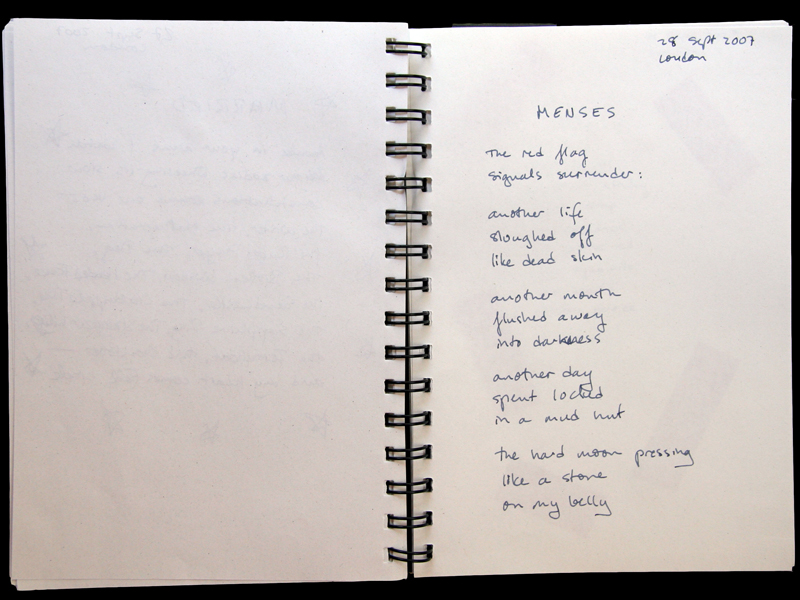 28 Sept 2007
London
MENSES
The red flag
signals surrender:
another life
sloughed off
like dead skin
another month
flushed away
into darkness
another day
spent locked
in a mud hut
the hard moon pressing
like a stone
on my belly